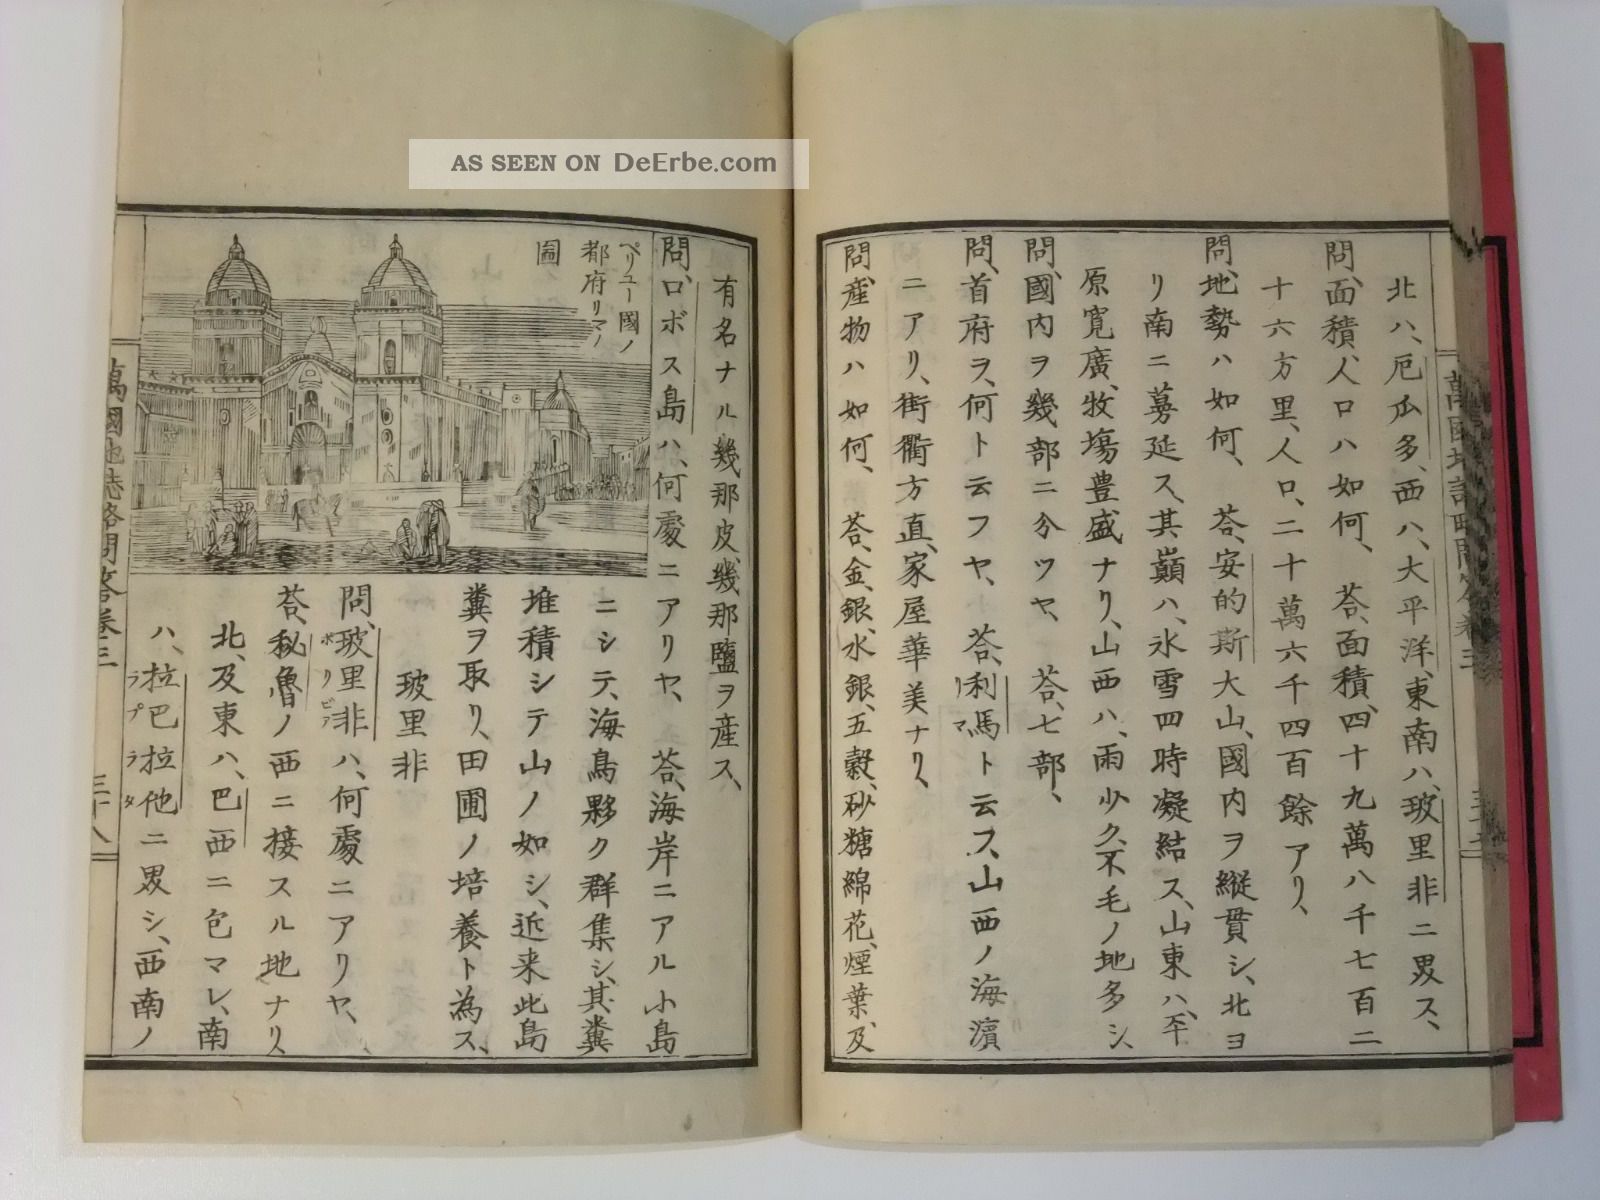 AS SEEN ON DeErbe.com
北ハ、厄瓜多、西ハ、大平洋、東南ハ、玻里非ニ界ス、
問、面積、人口ハ如何、 荅、面積、四十九萬八千七百二
十六方里、人口、二十萬六千四百餘アリ、
問、地勢ハ如何、 荅、安的斯大山、國内ヲ縦貫シ、北ヨ
リ南ニ蔓延ス、其巔ハ、氷雪四時凝結ス、山東ハ、平
原寛廣、牧塲豊盛ナリ、山西ハ、雨少ク、不毛ノ地多シ、
問、國内ヲ幾部ニ分ツヤ、 荅、七部、
問、首府ヲ、何ト云フヤ、 荅、利馬ト云フ、山西ノ海濵
リマ
ニアリ、街衢方直、家屋華美ナリ、
問、産物ハ如何、 荅、金、銀、水銀、五穀、砂糖、綿花、煙葉、及
有名ナル幾那皮、幾那鹽ヲ産ス、
問、ロボス島ハ、何處ニアリヤ、 荅、海岸ニアル小島
ペリユー國ノ
都府リマノ
圖
ニシテ、海鳥夥ク群集シ、其糞
堆積シテ山ノ如シ、近来此島
糞ヲ取リ、田圃ノ培養ト為ス、
玻里非
問、玻里非ハ、何處ニアリヤ、
ボリビア
荅、秘魯ノ西ニ接スル地ナリ、
北、及東ハ、巴西ニ包マレ、南
ハ、拉巴拉他ニ界シ、西南ノ
ラプラタ
萬國地誌略問答卷三
三十八